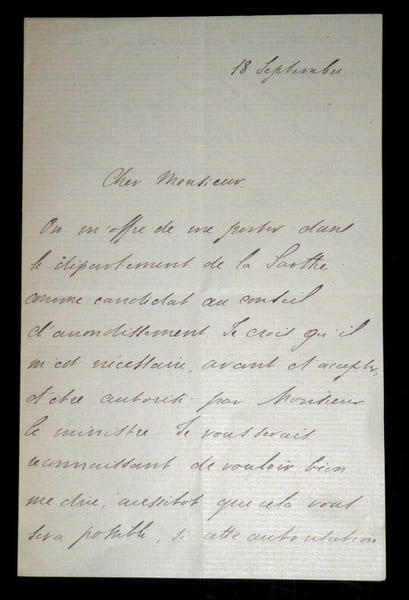 18 Septembre.
Cher Monsieur.
On m'offre de me porter dans
le département de la Sarthe
comme candidat au conseil
d'arrondissement. Je crois qu'il
m'est nécessaire, avant d'accepter,
d'être autorisé par Monsieur
le ministre. Je vous serais
reconnaissant de vouloir bien
me dire, aussitôt que cela vous
sera possible, si cette autorisation